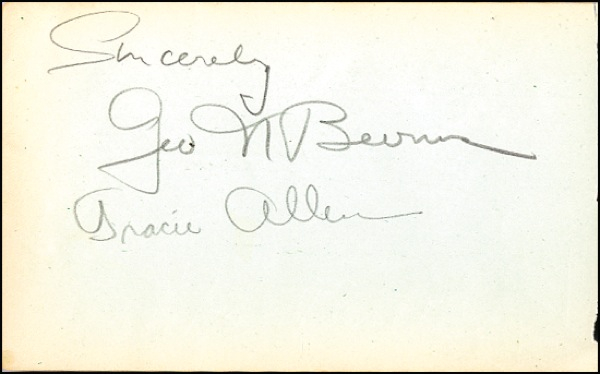 Sincerely
Geo N Burns
Gracie Allen